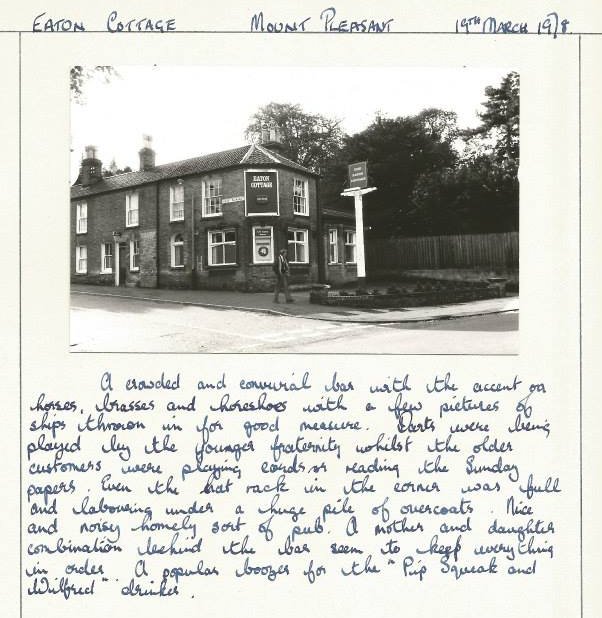 EATON COTTAGE MOUNT PLEASANT 19TH MARCH 1978
EATON
COTTAGE
A crowded and convivial bar with the accent on
horses, brasses and horseshoes with a few pictures of
ships thrown in for good measure. Darts were being
played by the younger fraternity whilst the older
customers were playing cards or reading the Sunday
papers. Even the hat rack in the corner was full
and labouring under a huge pile of overcoats. Nice
and noisy homely sort of pub. A mother and daughter
combination behind the bar seem to keep everything
in order. A popular boozer for the "Pip Squeak and
Wilfred" drinker.